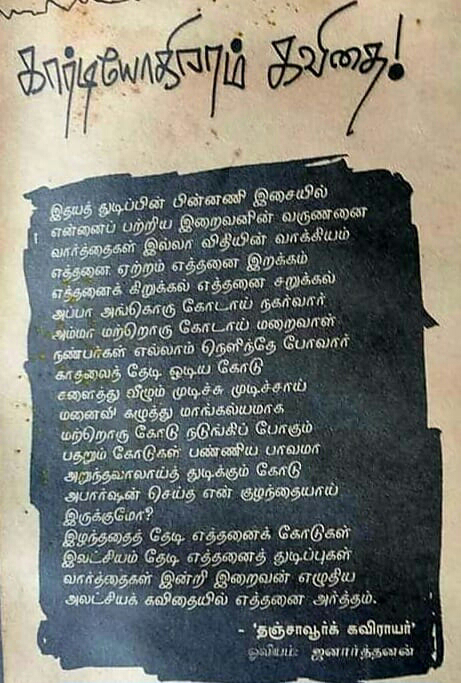 கார்டியோகிராம் கவிதை!
இதயத் துடிப்பின் பின்னணி இசையில்
என்னைப் பற்றிய இறைவனின் வருணனை
வார்த்தைகள் இல்லா விதியின் வாக்கியம்
எத்தனை ஏற்றம் எத்தனை இறக்கம்
எத்தனைக் கிறுக்கல் எத்தனை சறுக்கல்
அப்பா அங்கொரு கோடாய் நகர்வார்
அம்மா மற்றொரு கோடாய் மறைவாள்
நண்பர்கள் எல்லாம் நெளிந்தே போவார்
காதலைத் தேடி ஓடிய கோடு
களைத்து வீழும் முடிச்சு முடிச்சாய்
மனைவி கழுத்து மாங்கல்யமாக
மற்றொரு கோடு நடுங்கிப் போகும்
பதறும் கோடுகள் பண்ணிய பாவமா
அறுந்தவாலாய்த் துடிக்கும் கோடு
அபார்ஷன் செய்த என் குழந்தையாய்
இருக்குமோ?
இழந்ததைத் தேடி எத்தனைக் கோடுகள்
இலட்சியம் தேடி எத்தனைத் துடிப்புகள்
வார்த்தைகள் இன்றி இறைவன் எழுதிய
அலட்சியக் கவிதையில் எத்தனை அர்த்தம்.
- 'தஞ்சாவூர்க் கவிராயர்'
ஓவியம்: ஜனார்த்தனன்